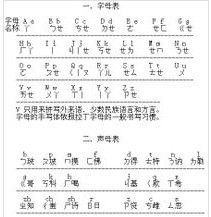 一、字母表
字母 Aa Bb Cc Dd Ee Ff Gg
名称 ㄚ ㄅㄝ ㄘㄝ ㄉㄝ ㄜ ㄝㄈ ㄍㄝ
Hh Ii Jj Kk Ll Mm Nn
ㄏㄚ ㄧ ㄐㄧㄝ ㄎㄝ ㄝㄌ ㄝㄇ ㄋㄝ
Oo Pp Qq Rr Ss Tt Uu
ㄛ ㄆㄝ ㄑㄧㄡ ㄚㄦ ㄝㄙ ㄊㄝ ㄨ
Vv Ww Xx Yy Zz
ㄪㄝ ㄨㄚ ㄒㄧ ㄧㄚ ㄗㄝ
V 只用来拼写外来语、少数民族语言和方言。
字母的手写体依照拉丁字母的一般书写习惯。
二、声母表
b p m f d t n l
ㄅ玻 ㄆ坡 ㄇ摸 ㄈ佛 ㄉ得 ㄊ特 ㄋ讷 ㄌ勒
g k h j q x
ㄍ哥 ㄎ科 ㄏ喝 ㄐ基 ㄑ欺 ㄒ希
zh ch sh r z c s
ㄓ知 ㄔ蚩 ㄕ诗 ㄖ日 ㄗ资 ㄘ雌 ㄙ思